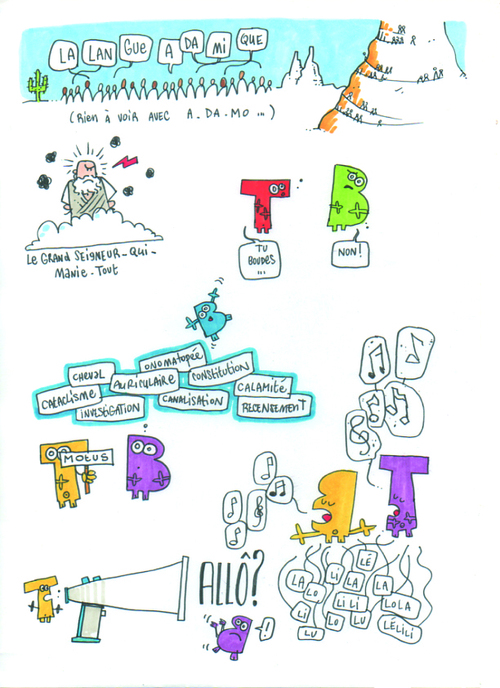 LA LAN GUE A DA MI QUE
(Rien à voir avec A-DA-MO ...)
LE GRAND SEIGNEUR-QUI-
MANIE-TOUT
TU
BOUDES
...
NON!
ONOMATOPÉE
CHEVAL
AURICULAIRE
CONSTITUTION
CATACLISME
CALAMITÉ
INVESTIGATION
CANALISATION
RECENSEMENT
MOTUS
ALLÔ?
!
LÉ
LA
LI
LA
LA
LO
LI LI
LOLA
LI
LO
LU
LÉLILI
LU